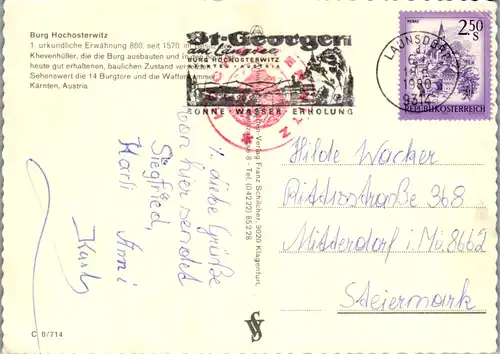 Burg Hochosterwitz
1. urkundliche Erwähnung 860, seit 1570 im
Khevenhüller, die die Burg ausbauten und in
heute gut erhaltenen, baulichen Zustand
Sehenswert die 14 Burgtore und die Waffenkammer
Kärnten, Austria
St. Georgen
am Längsee
BURG HOCHOSTERWITZ
KÄRNTEN - AUSTRIA
SONNE WASSER - ERHOLUNG
MURAU
2.50 S
REPUBLIK ÖSTERREICH
LAUNSDORF
1980
9314
liebe Grüße
von hier sendet
Siegfried,
Harli Anni
Karli
Verlag Franz Schilcher, 9020 Klagenfurt,
8 - Tel. (04222) 85228
Hilde Wacker
Rittisstraße 368
Mitterdorf i. Mü. 8662
Steiermark
C 8/714